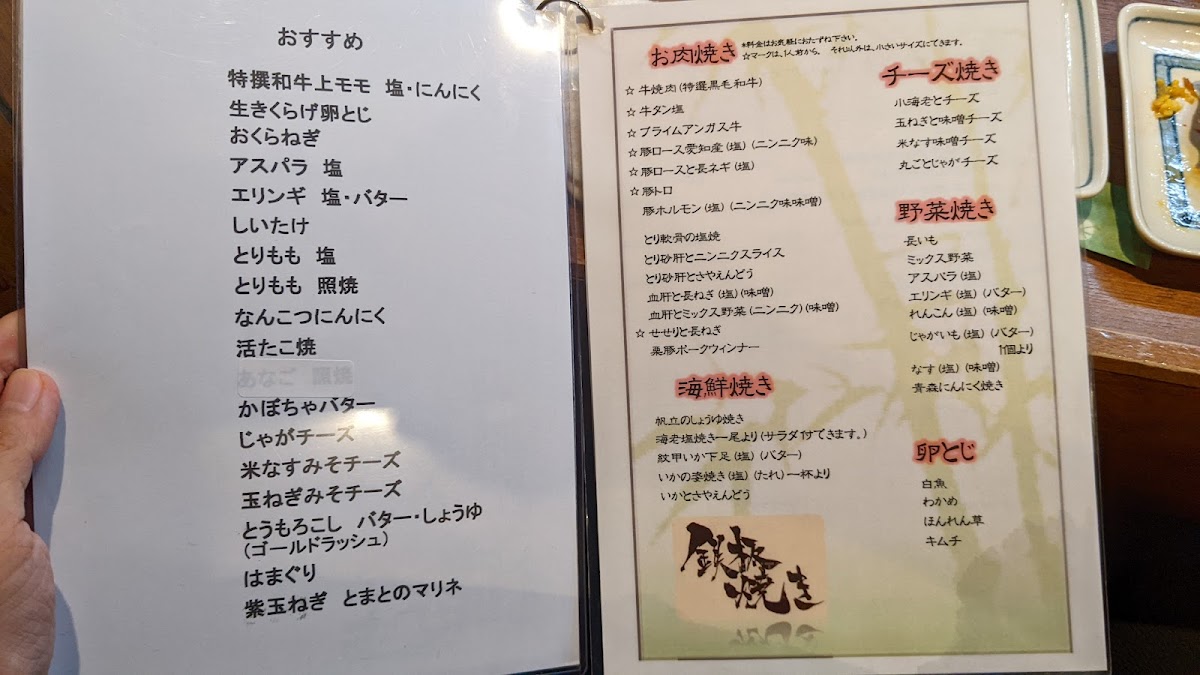 おすすめ
特撰和牛上モモ 塩・にんにく
生きくらげ卵とじ
おくらねぎ
アスパラ 塩
エリンギ 塩・バター
しいたけ
とりもも 塩
とりもも 照焼
なんこつにんにく
活たこ焼
あなご 照焼
かぼちゃバター
じゃがチーズ
米なすみそチーズ
玉ねぎみそチーズ
とうもろこし バター・しょうゆ
(ゴールドラッシュ)
はまぐり
紫玉ねぎ とまとのマリネ
お肉焼き
*料金はお気軽におたずね下さい。
☆マークは、1人前から。 それ以外は、小さいサイズにできます。
☆ 牛焼肉(特選黒毛和牛)
☆ 牛タン塩
☆ プライムアンガス牛
☆ 豚ロース愛知産(塩)(ニンニク味)
☆ 豚ロースと長ネギ(塩)
☆ 豚トロ
豚ホルモン(塩)(ニンニク味味噌)
とり軟骨の塩焼
とり砂肝とニンニクスライス
とり砂肝とさやえんどう
血肝と長ねぎ(塩)(味噌)
血肝とミックス野菜(ニンニク)(味噌)
☆ せせりと長ねぎ
栗豚ポークウィンナー
海鮮焼き
帆立のしょうゆ焼き
海老塩焼き一尾より(サラダ付できます。)
紋甲いか下足(塩)(バター)
いかの姿焼き(塩)(たれ)一杯より
いかとさやえんどう
鉄板
焼き
チーズ焼き
小海老とチーズ
玉ねぎと味噌チーズ
米なす味噌チーズ
丸ごとじゃがチーズ
野菜焼き
長いも
ミックス野菜
アスパラ(塩)
エリンギ(塩)(バター)
れんこん(塩)(味噌)
じゃがいも(塩)(バター)
1個より
なす(塩)(味噌)
青森にんにく焼き
卵とじ
白魚
わかめ
ほんれん草
キムチ